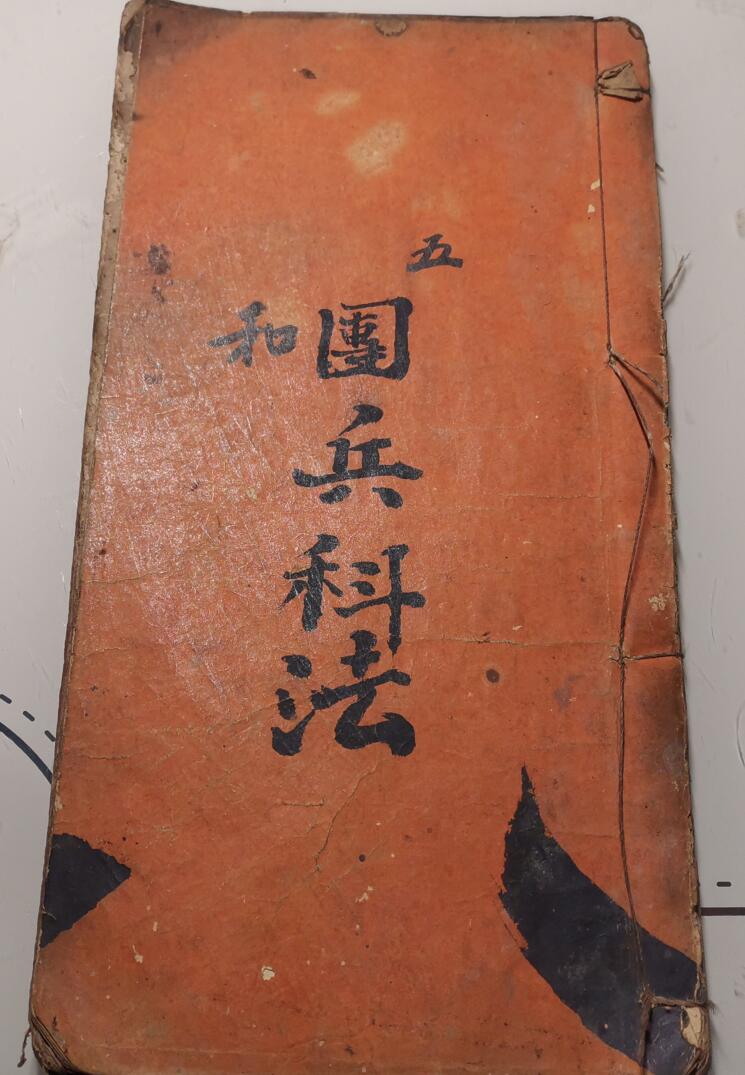 五
團兵科法
和